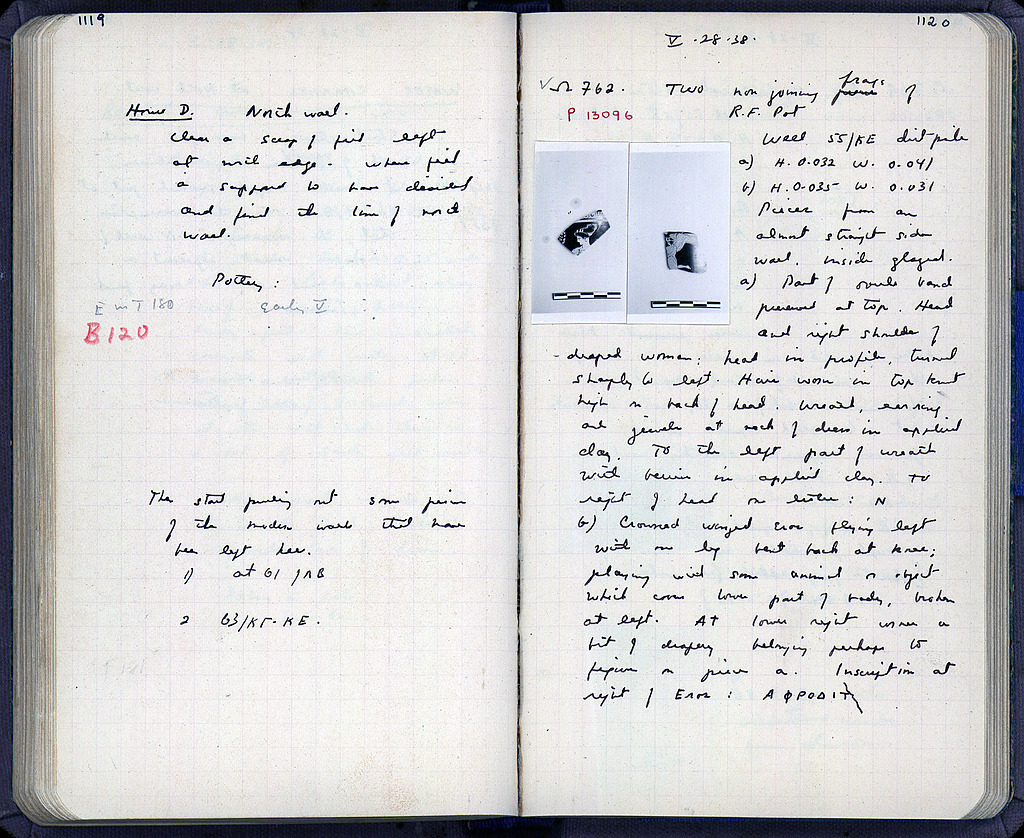 1119
House D. North wall.
clean a scrap of fill left
at north edge. where fill
a support to have decided
and find the line of north
wall.
Pottery:
E in T 180 Early V
B 120
Then start pulling out some pieces
of the modern walls that have
been left here.
1) at 61/ΛB
2 63/ΚΓ-ΚΕ.
1120
V-28-38.
√Ω 762. Two non joining frags of
P 13096 R.F. Pot
Well 55/ΚΕ dist pile
a) H. 0.032 W. 0.041
b) H. 0.035 W. 0.031
Pieces from an
almost straight side
wall. inside glazed.
a) Part of ovule band
preserved at top. Head
and right shoulder of
draped woman; head in profile, turned
sharply to left. Hair worn in top knot
high on back of head. Wreath, earring
and jewels at neck of dress in applied
clay. To the left part of wreath
with berries in applied clay. To
right of head an letter: N
b) Crowned winged Eros flying left
with one leg bent back at knee;
playing with some animal or object
which covers lower part of body, broken
at left. At lower right corner a
bit of drapery belonging perhaps to
figure on piece a. Inscription at
right of Eros: ΑΦΡΟΔΙΤ